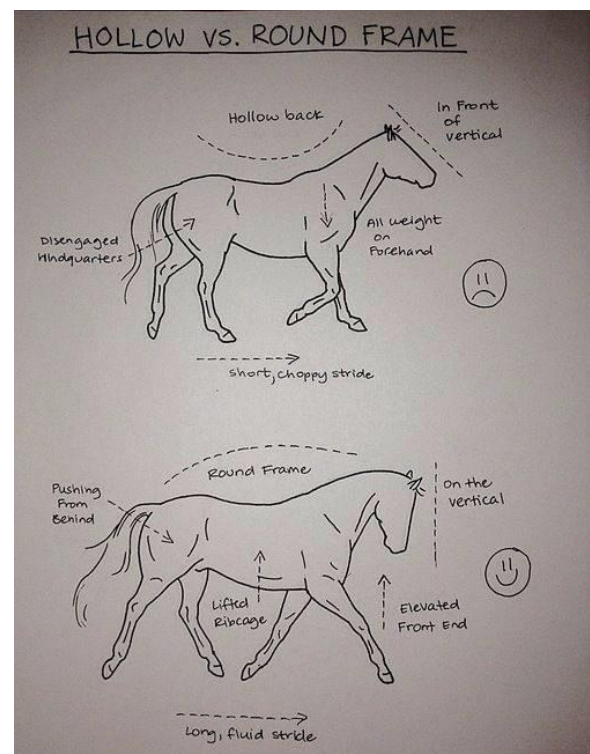 HOLLOW VS. ROUND FRAME
Hollow back
In Front
of
vertical
Disengaged
Hindquarters
All weight
on
Forehand
short, choppy stride
Round Frame
Pushing
From
Behind
on the
vertical
Lifted
Ribcage
Elevated
Front End
Long, fluid stride